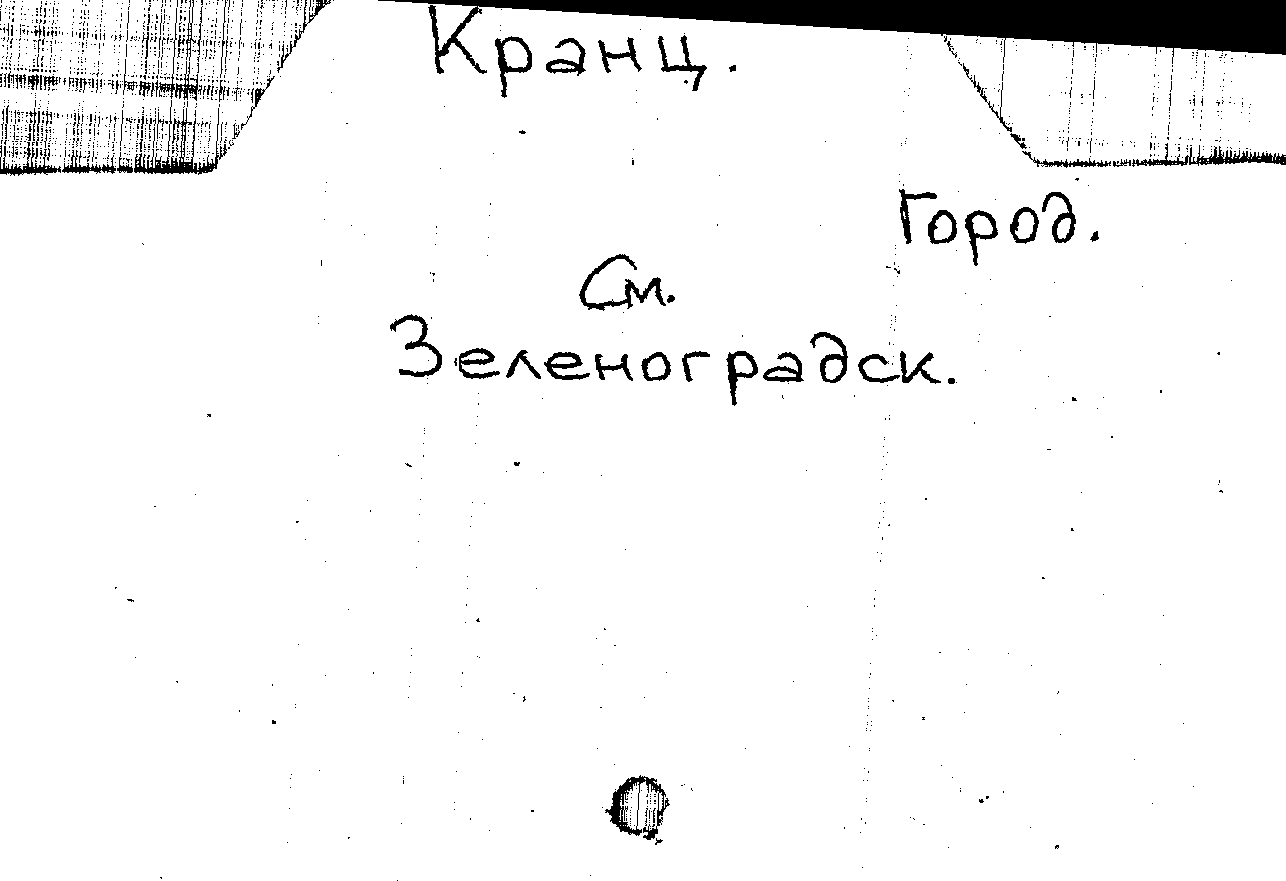 Кранц.
Город.
См.
Зеленоградск.